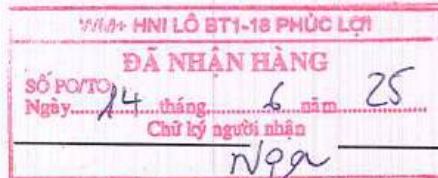 WM+ HNI LÔ BT1-18 PHÚC LỢI
ĐÃ NHẬN HÀNG
SỐ PO/TO
Ngày 14 tháng 6 năm 25
Chữ ký người nhận
Nga